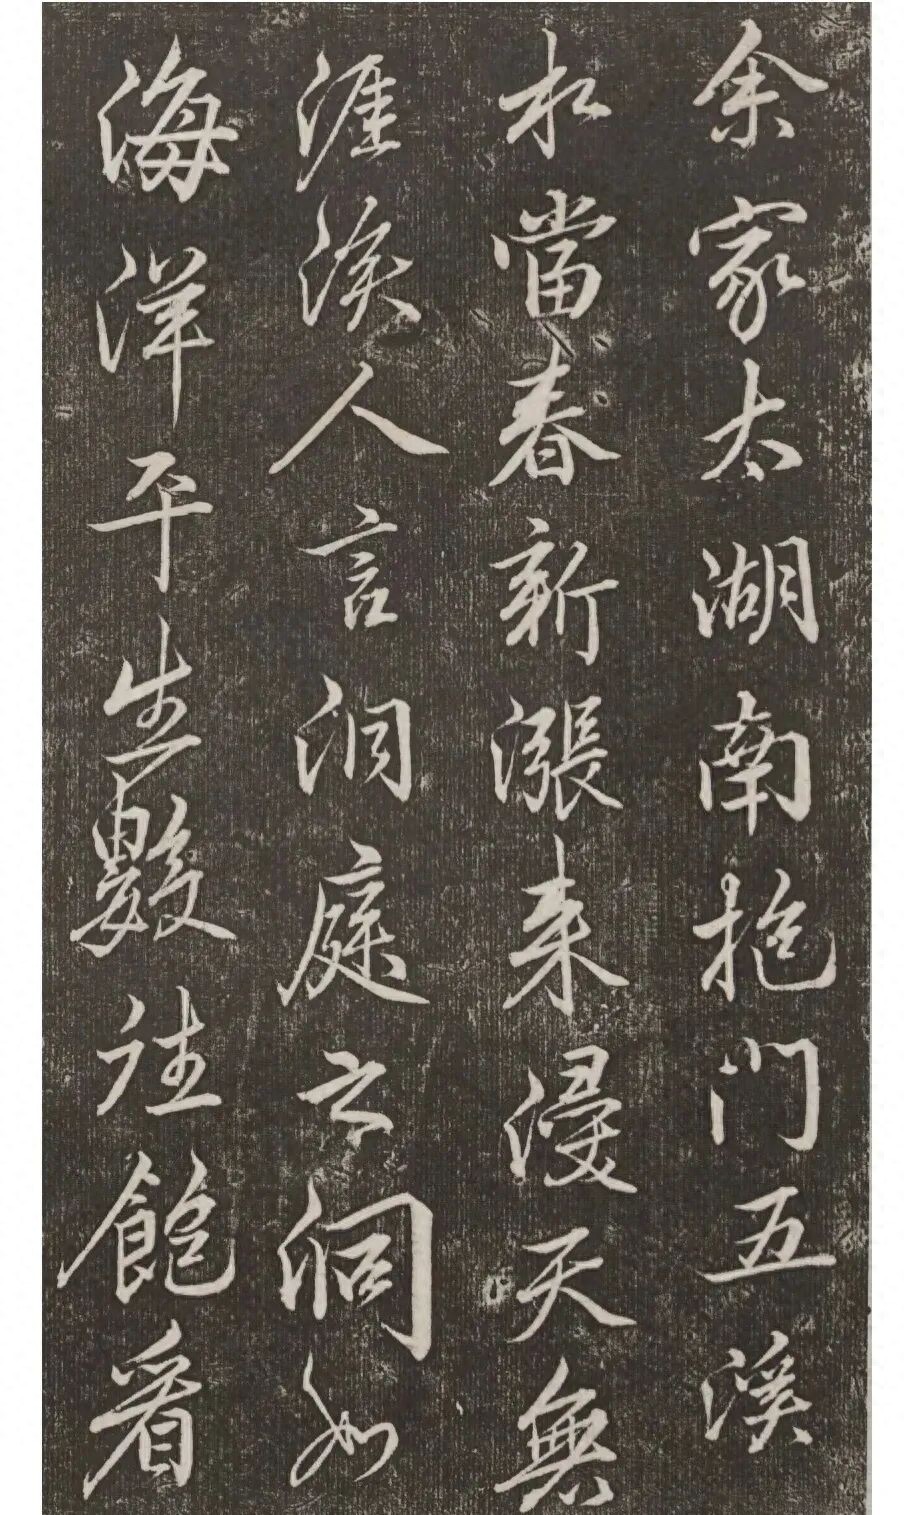 余家太湖南抱門五溪
水當春新漲来浸天無
涯涘人言洞庭云洞如
海洋平生數往飽看